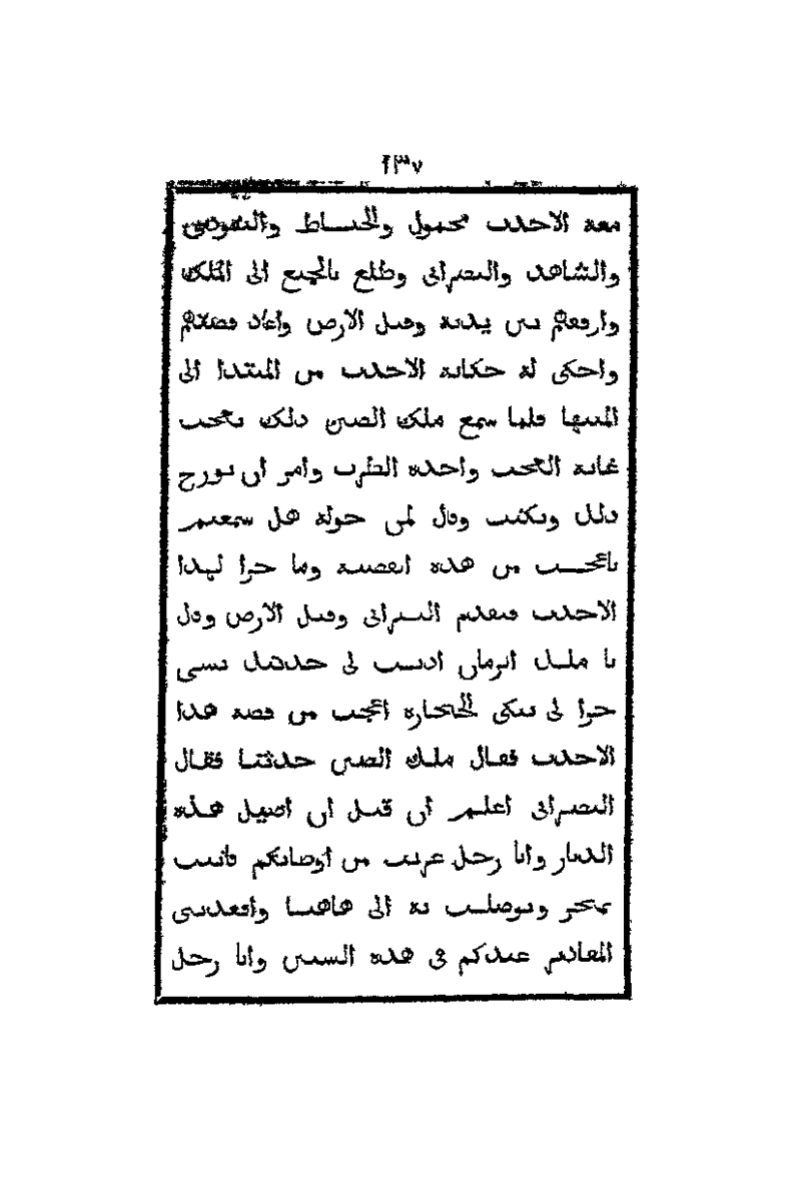 ١٣٧
معه الاحدب محمول والخياط واليهودى
والشاهد والنصرانى وطلع بالجميع الى الملك
وارقعهم بين يديه وقبل الارض واعاد قصتهم
واحكى له حكاية الاحدب من المبتدا الى
المنتها فلما سمع ملك الصين ذلك تعجب
غاية العجب واخذه الطرب وامر ان يورخ
ذلك ويكتب وقال لمن حوله هل سمعتم
باعجب من هذه القصة وما جرا لهذا
الاحدب فتقدم النصرانى وقبل الارض وقال
يا ملك الزمان اذنت لى حدثتك بشى
جرا لى تبكى الحجارة اعجب من قصة هذا
الاحدب فقال ملك الصين حدثنا فقال
النصرانى اعلم ان قبل ان اصيل هذه
الديار وانا رجل غريب من اوطانكم فاتيت
بمتجر وتوصلت به الى هاهنا واقعدنى
المقادير عندكم فى هذه السنين وانا رجل